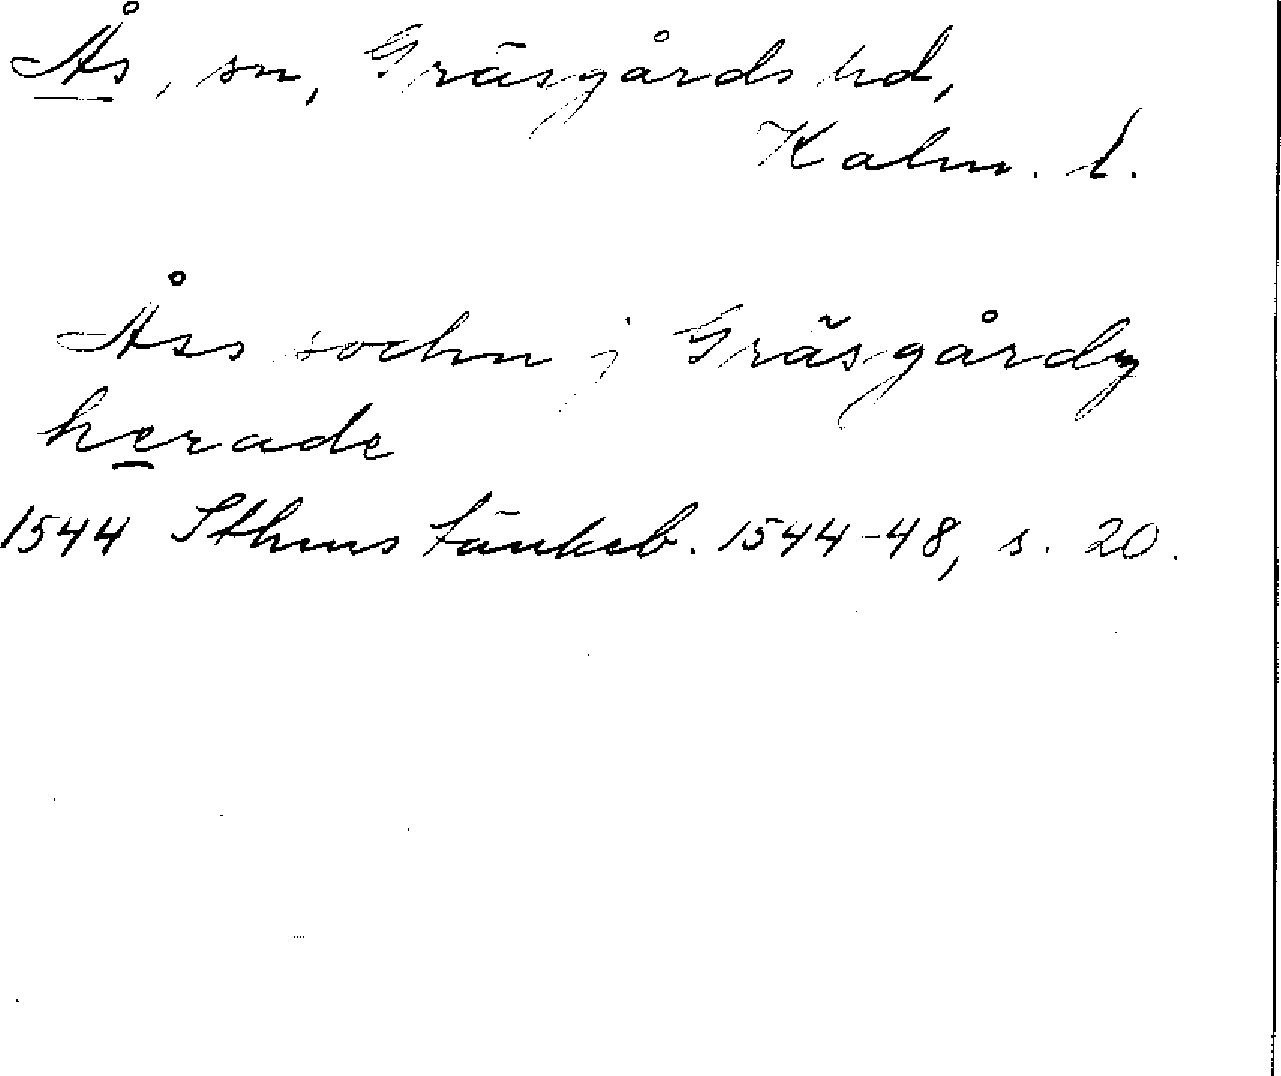 Ås, sn, Gräsgårds hd,
Kalm. l.
Åss sochn j Gräsgårdz
herade
1544 Sthms tänkeb. 1544-48, s. 20.